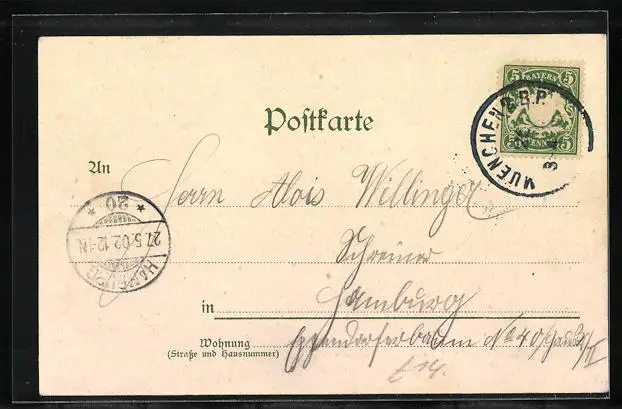 5 BAYERN 5
5 PFENNIG 5
MUENCHEN 2 B.B.P.
Postkarte
An
Herrn Alois Willinger
Schreiner
in Hamburg
Wohnung
(Straße und Hausnummer)
Eppendorferbaum No 40
HAMBURG
27.5.02.12-1N
* 20 *